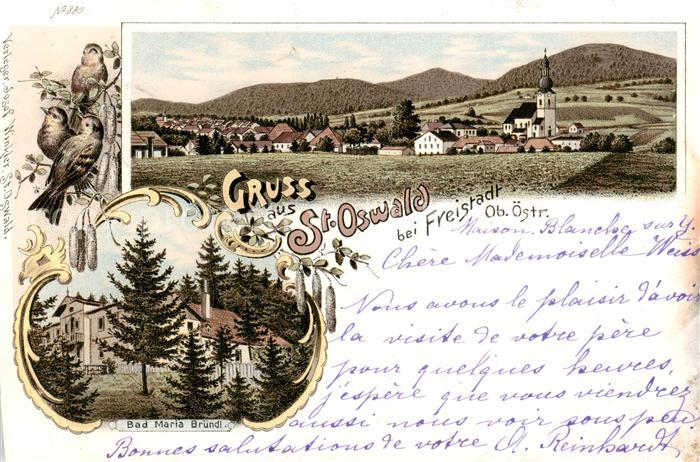 No 880
Verleger: Josef Winkler, St. Oswald.
GRUSS
aus
St. Oswald
bei Freistadt
Ob. Östr.
Bad Maria Bründl.
Maison Blanche sur y.
Chère Mademoiselle Weiss
Nous avons le plaisir d'avoir
la visite de votre père
pour quelques heures,
j'espère que vous viendrez
aussi nous voir sous peu
Bonnes salutations de votre A. Reinhardt